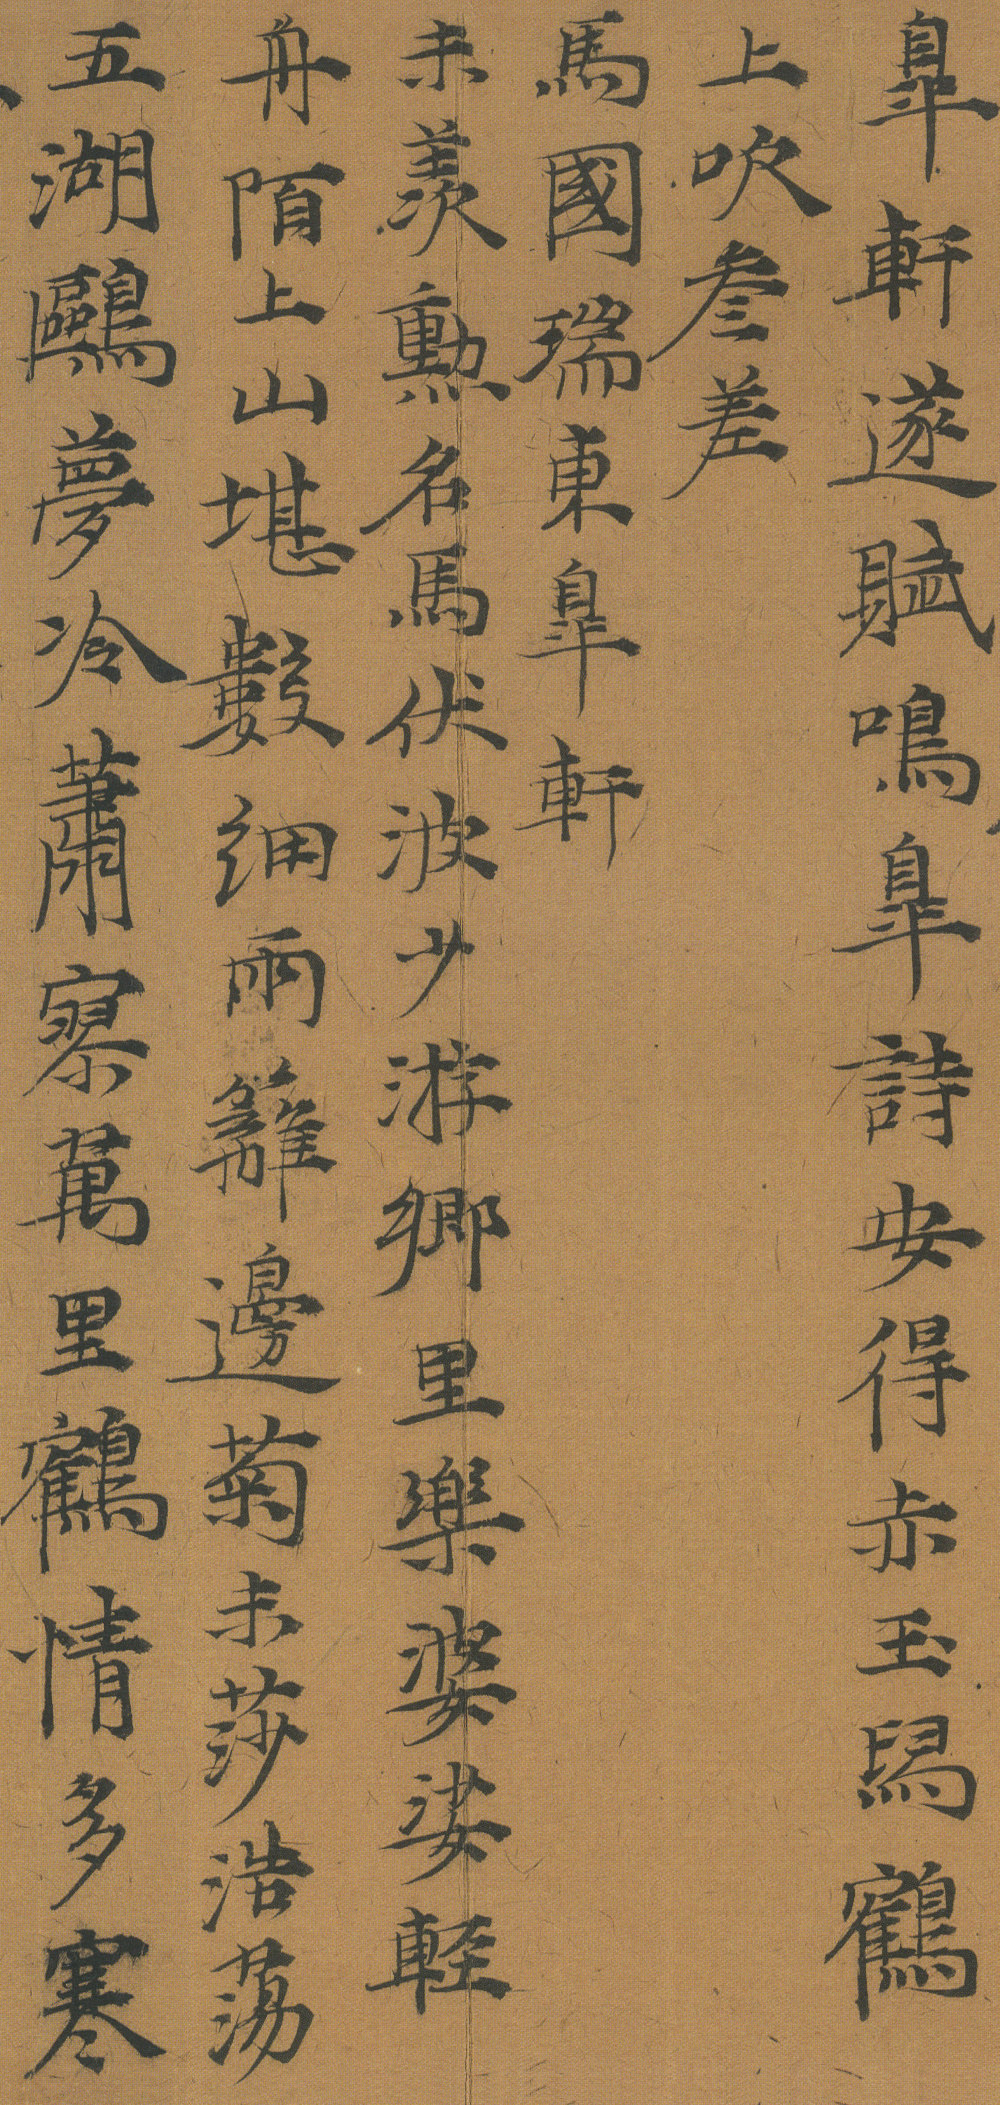 皐軒遂賦鳴皐詩安得赤玉舄鶴
上吹叄差
馬國瑞東皐軒
未羨勳名馬伏波少游鄉里樂婆娑輕
舟陌上山堪數細雨籬邊菊未莎浩蕩
五湖鷗夢冷蕭寥萬里鶴情多寒